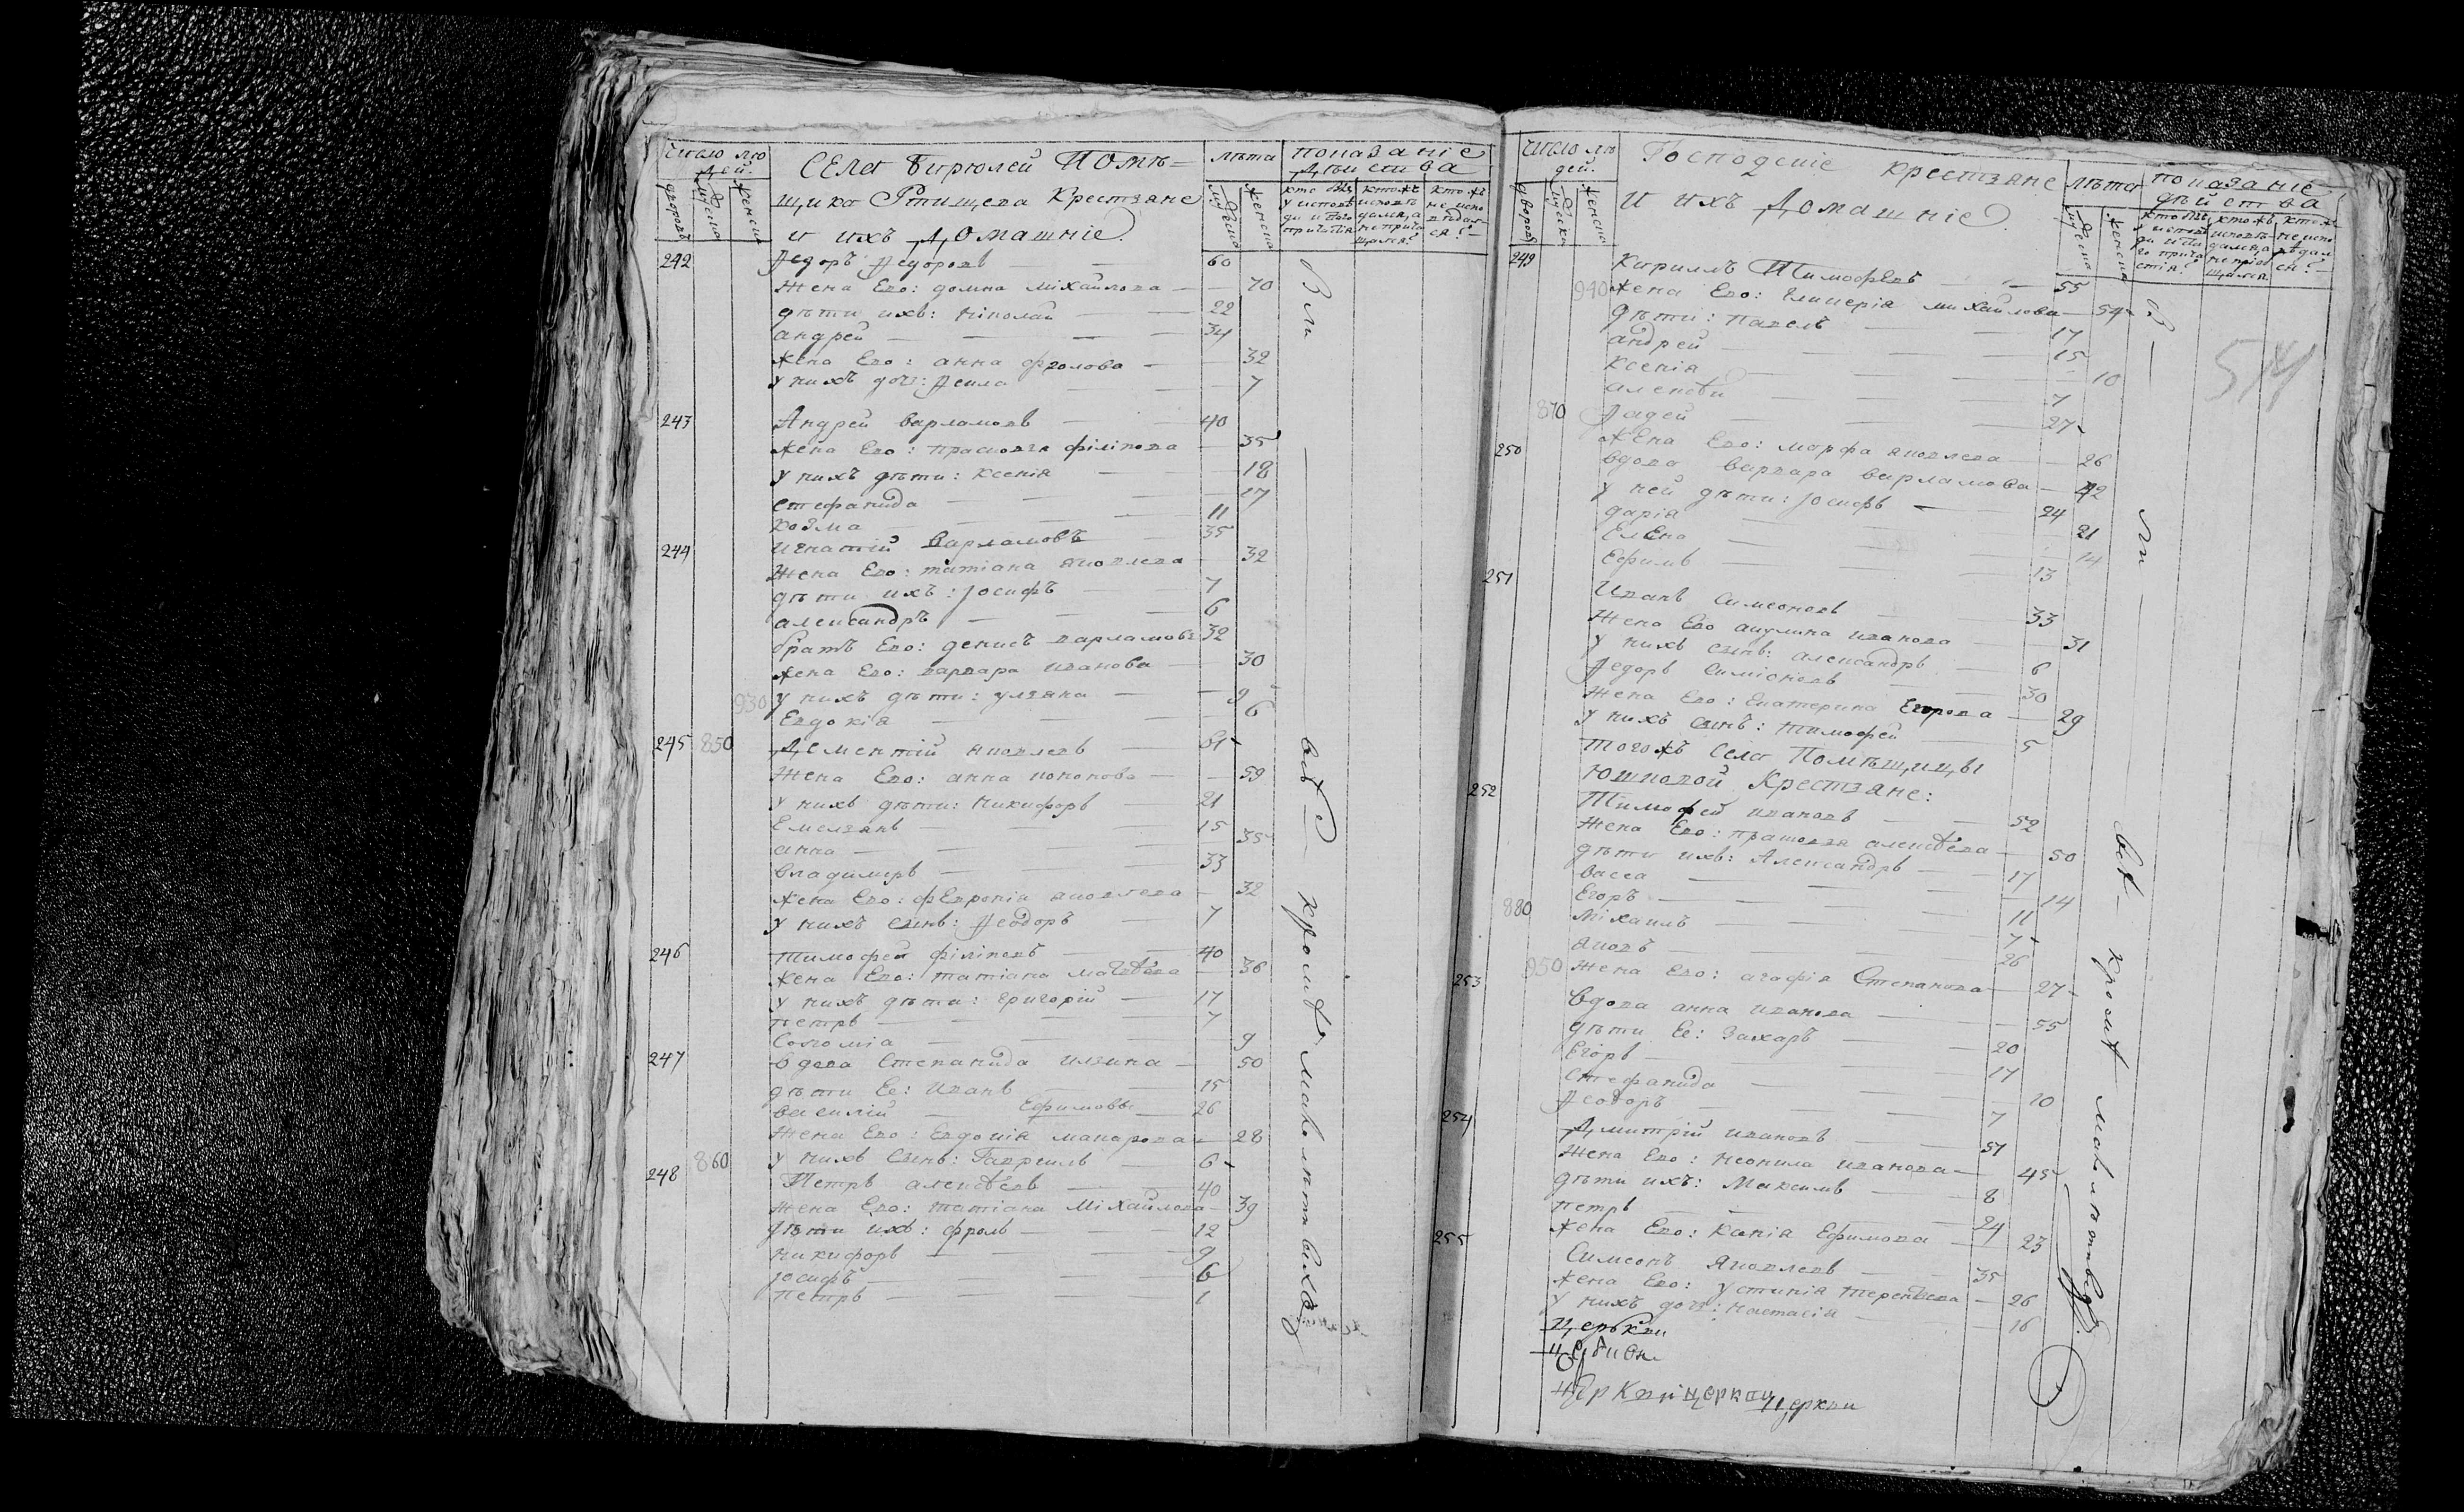 Число лю
дей.
дворовъ
мужеска
женска
Села Бирюлей Помѣ=
щика Ртищева Крестьяне
и ихъ Домашніе.
лѣта
мужеска
женска
показаніе
дѣйства
кто былъ
у исповѣ
ди и свято
причастія
ктожъ
исповѣ
дался, а
не прича
щался?
кто жъ
не испо
вѣдал
ся? —
242 Ѳедоръ Ѳедоровъ — 60
Жена Ево: домна міхайлова — 70
дѣти ихъ: Ніколай — 22
андрей — 34
жена Ево: анна фролова — 32
у нихъ дочь: Ѳекла — 7
243 Андрей варламовъ — 40
жена Ево: прасковья філіпова 35
у нихъ дѣти: ксенія — 18
стефанида — 17
козма — 11
244 игнатій Варламовъ — 35
Жена Ево: татіана яковлева 32
дѣти ихъ: Іосифъ — 7
александръ — 6
братъ Ево: денисъ варламовъ 32
жена Ево: варвара иванова — 30
930 у нихъ дѣти: ульяна — 9
Евдокія — 6
245 850 Дементій яковлевъ — 61
Жена Ево: анна кононова — 59
у нихъ дѣти: никифоръ — 21
Емельянъ — 15
анна — 35
владимиръ — 33
жена Ево: фЕвронія яковлева — 32
у нихъ сынъ: Ѳеодоръ — 7
246 тимофей філіповъ — 40
жена Ево: татіана матвѣева — 36
у нихъ дѣти: григорій — 17
петръ — 7
Соломіа — 9
247 вдова Степанида ильина — 50
дѣти Ее: Иванъ — 15
василій — Ефимовы — 26
Жена Ево: Евдокія макарова — 28
860 у нихъ Сынъ: Гавріилъ — 6
248 Петръ алексѣевъ — 40
жена Ево: татіана Міхайлова — 39
дѣти ихъ: фролъ — 12
никифоръ — 9
Іосифъ — 6
петръ — 1
Были — всѣ — кромѣ малолѣтныхъ
Число лю
дей.
дворовъ
мужеска
женска
Господскіе крестьяне
и ихъ Домашніе.
лѣта
мужеска
женска
показаніе
дѣйства
кто былъ
у исповѣ
ди и свя
то прича
стія?
кто жъ
исповѣ-
дался, а
не прича
щался
кто ж
не испо
вѣдал
ся? —
514
249 Кириллъ Тимофеевъ — 55
940 жена Ево: Гликерія михайлова — 54
дѣти: павелъ — 17
андрей — 15
ксенія — 10
алексѣй — 7
870 Ѳадей — 27
жЕна Ево: марфа яковлева — 26
250 вдова варвара варламова — 42
у ней дѣти: Іосифъ — 24
дарія — 21
ЕлЕна — 14
Ефимъ — 13
251 Иванъ Симеоновъ — 33
Жена Ево акулина иванова — 31
у нихъ сынъ: александръ — 6
Ѳедоръ Симіоновъ — 30
жена Ево: Екатерина Егорова — 29
у нихъ сынъ: тимофей — 5
тогожъ Села Помѣщицы
Юшковой Крестьяне:
252 Тимофей ивановъ — 52
жена Ево: прасковья алексѣева — 50
дѣти ихъ: Александръ — 17
васса — 14
Егоръ — 11
880 Міхаилъ — 7
яковъ — 26
950 жена Ево: агафія Степанова — 27
253 вдова анна иванова — 55
дѣти Ее: Захаръ — 20
Егоръ — 17
стефанида — 10
Ѳеодоръ — 7
254 Дмитрій ивановъ — 51
Жена Ево: неонила иванова — 45
дѣти ихъ: Максимъ — 8
петръ — 24
жена Ево: ксенія Ефимова — 23
255 Симеонъ яковлевъ — 35
жена Ево: устинія терентьева — 26
у нихъ дочь: настасія — 16
Церкви
церкви церкви церкви
Были — всѣ — кромѣ малолѣтныхъ.